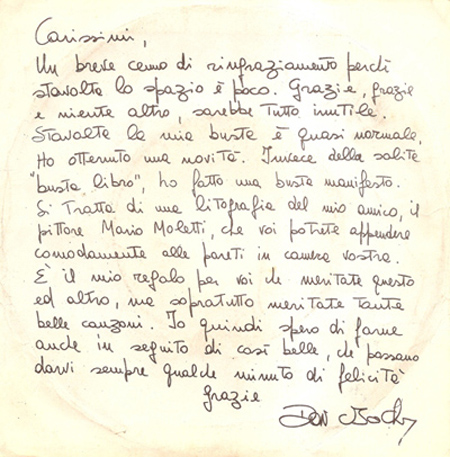 Carissimi,
Un breve cenno di ringraziamento perché
stavolta lo spazio è poco. Grazie, grazie
e niente altro, sarebbe tutto inutile.
Stavolta la mia busta è quasi normale,
Ho ottenuto una novità. Invece della solita
"busta libro", ho fatto una busta manifesto.
Si tratta di una litografia del mio amico, il
pittore Mario Moletti, che voi potrete appendere
comodamente alle pareti in camera vostra.
È il mio regalo per voi che meritate questo
ed altro, ma sopratutto meritate tante
belle canzoni. Io quindi spero di farne
anche in seguito di così belle, che possano
darvi sempre qualche minuto di felicità
Grazie
Don Backy